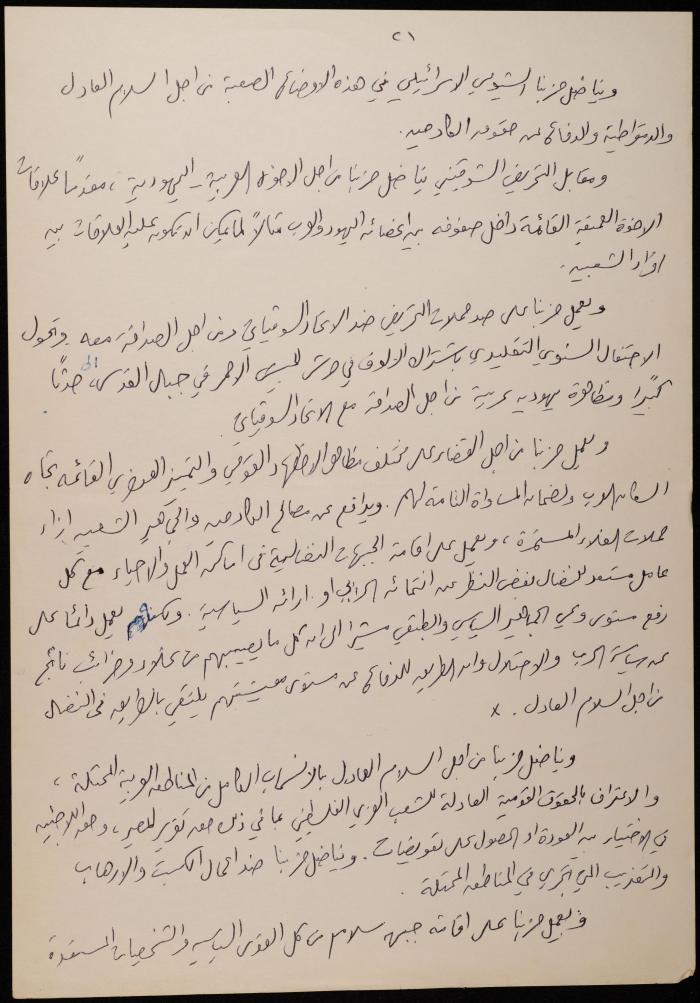 ٢١
ويناضل حزبنا الشيوعي الاسرائيلي في هذه الاوضاع الصعبة من اجل السلام العادل
والدمقراطية والدفاع عن حقوق الكادحين.
ومقابل التحريض الشوفيني يناضل حزبنا من اجل الاخوة العربية - اليهودية، مقدمًا علاقات
الاخوة العميقة القائمة داخل صفوفه بين اعضائه اليهود والعرب مثالاً لما يمكن ان تكون عليه العلاقات بين
افراد الشعبين.
ويعمل حزبنا على صد حملات التحريض ضد الاتحاد السوفياتي ومن اجل الصداقة معه. وتحول
الاحتفال السنوي التقليدي باشتراك الالوف في حرش الجيش الاحمر في جبال القدس، الى حدثًا
كبيرًا ومظاهرة يهودية عربية من اجل الصداقة مع الاتحاد السوفياتي.
ويعمل حزبنا من اجل القضاء على مختلف مظاهر الاضطهاد القومي والتمييز العنصري القائمة تجاه
السكان العرب ولضمان المساواة التامة لهم. ويدافع عن مصالح الكادحين والجماهير الشعبية ازاء
حملات الغلاء المستمرة، ويعمل على اقامة الجبهات النضالية في اماكن العمل والاحياء مع كل
عامل مستعد للنضال بغض النظر عن انتمائه الحزبي او ارائه السياسية. يعمل دائما على
رفع مستوى وعي الجماهير السياسي والطبقي مشيرا الى ان كل ما يصيبهم من غلاء وضرائب ناتج
عن سياسة الحرب والاحتلال وان الطريق للدفاع عن مستوى معيشتهم يلتقي بالطريق في النضال
من اجل السلام العادل. x
ويناضل حزبنا من اجل السلام العادل بالانسحاب الكامل من المناطق العربية المحتلة،
والاعتراف بالحقوق القومية العادلة للشعب العربي الفلسطيني بما في ذلك حق تقرير المصير، وحق اللاجئين
في الاختيار بين العودة او الحصول على تعويضات. ويناضل حزبنا ضد اعمال الكبت والارهاب
والتعذيب التي تجري في المناطق المحتلة.
ويعمل حزبنا على اقامة جبهة سلام من كل القوى السياسية والشخصيات المستعدة